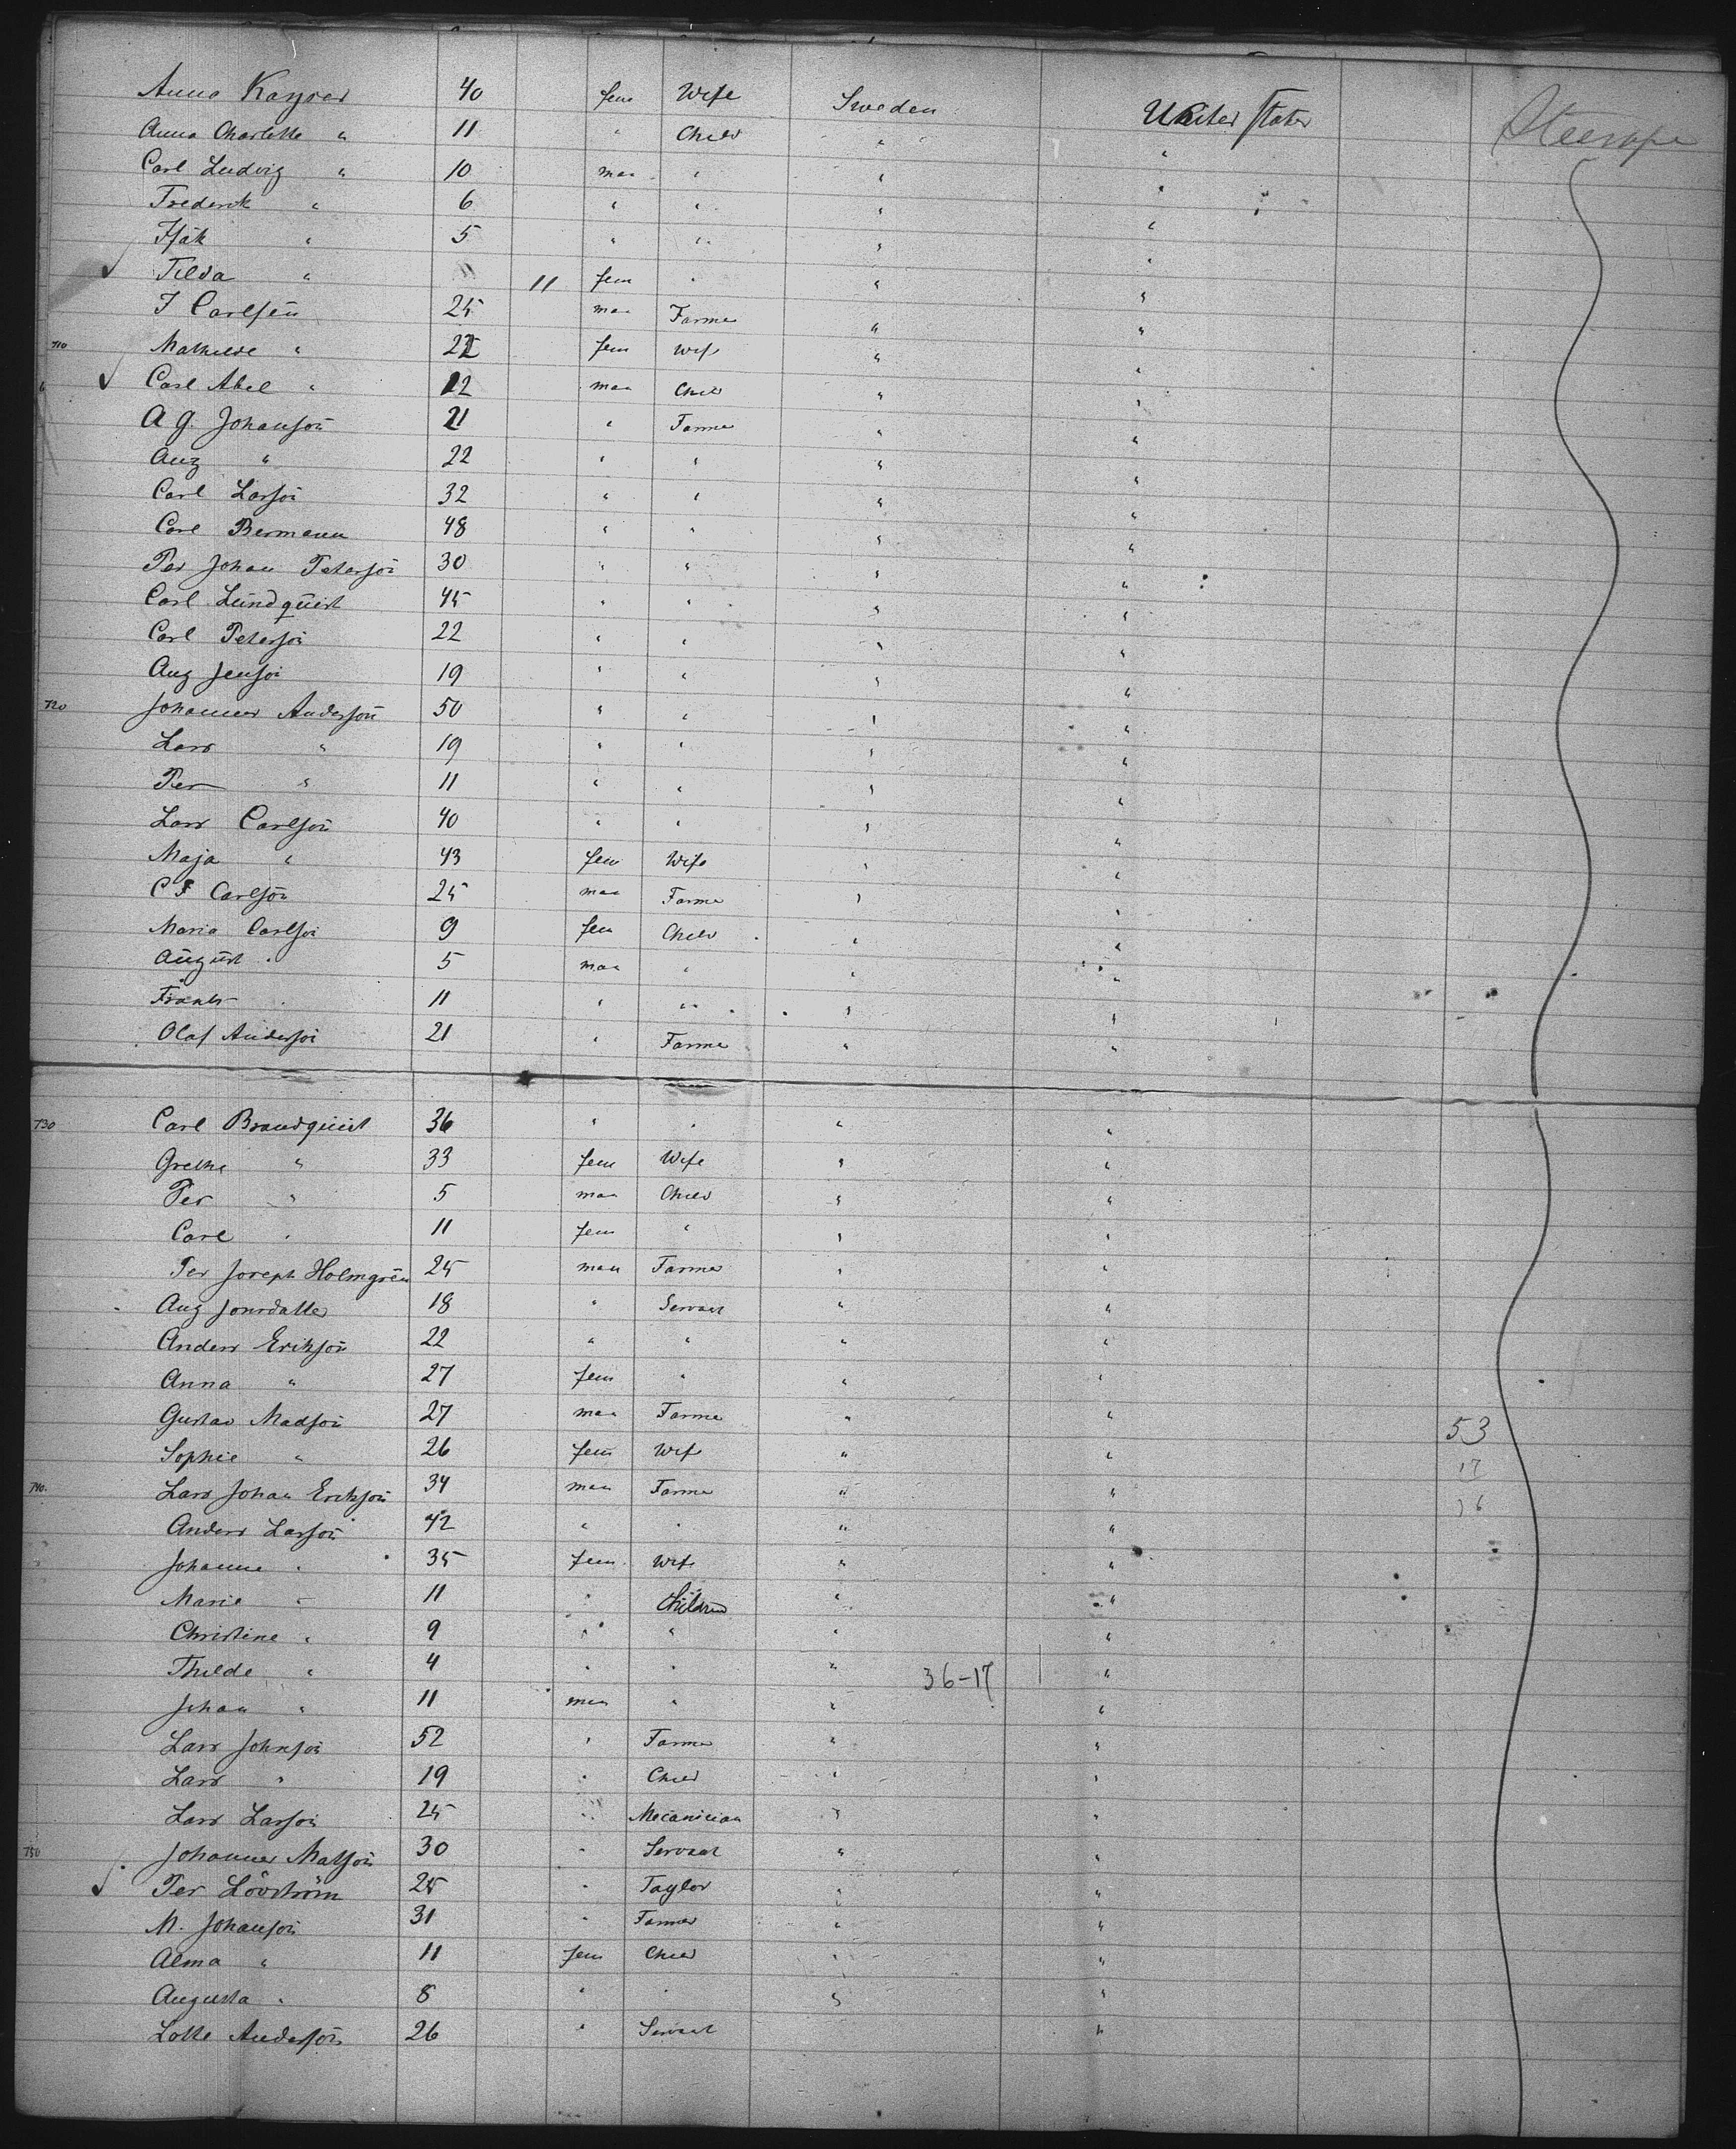 Anna Kayser 40 fem Wife Sweden United States Steerage
Anna Charlotte " 11 " Child " "
Carl Ludvig " 10 man " " "
Frederik " 6 " " " "
Isak " 5 " " " "
Tilda " 11 fem " " "
J Carlson 25 man Farmer " "
710 Mathilde " 22 fem Wife " "
Carl Abel " 12 man Child " "
A G. Johanson 21 " Farmer " "
Aug " 22 " " " "
Carl Larson 32 " " " "
Carl Bermann 48 " " " "
Per Johan Peterson 30 " " " "
Carl Lundquist 45 " " " "
Carl Peterson 22 " " " "
Aug Jenson 19 " " " "
720 Johannes Anderson 50 " " " "
Lars " 19 " " " "
Per " 11 " " " "
Lars Carlson 40 " " " "
Maja " 43 fem Wife " "
C F Carlson 25 man Farmer " "
Maria Carlson 9 fem Child " "
August " 5 man " " "
Frants " 11 " " " "
Olaf Anderson 21 " Farmer " "
730 Carl Brandquist 36 " " " "
Grethe " 33 fem Wife " "
Per " 5 man Child " "
Carl " 11 fem " " "
Per Joseph Holmgren 25 man Farmer " "
Aug Jonsdatter 18 " Servant " "
Anders Erikson 22 " " " "
Anna " 27 fem " " "
Gustav Madson 27 man Farmer " " 53
Sophie " 26 fem Wife " " 17
740. Lars Johan Erikson 34 man Farmer " " 36
Anders Larson 42 " " " "
Johanne " 35 fem Wife " "
Marie " 11 " Children " "
Christine " 9 " " " "
Thilde " 4 " " " 36-17 "
Johan " 11 man " " "
Lars Johnson 52 " Farmer " "
Lars " 19 " Child " "
Lars Larson 25 " Mecanician " "
750 Johannes Matson 30 " Servant " "
Per Lövström 25 " Taylor " "
M. Johanson 31 " Farmer " "
Alma " 11 fem Child " "
Augusta " 8 " " " "
Lotte Anderson 26 " Servant "